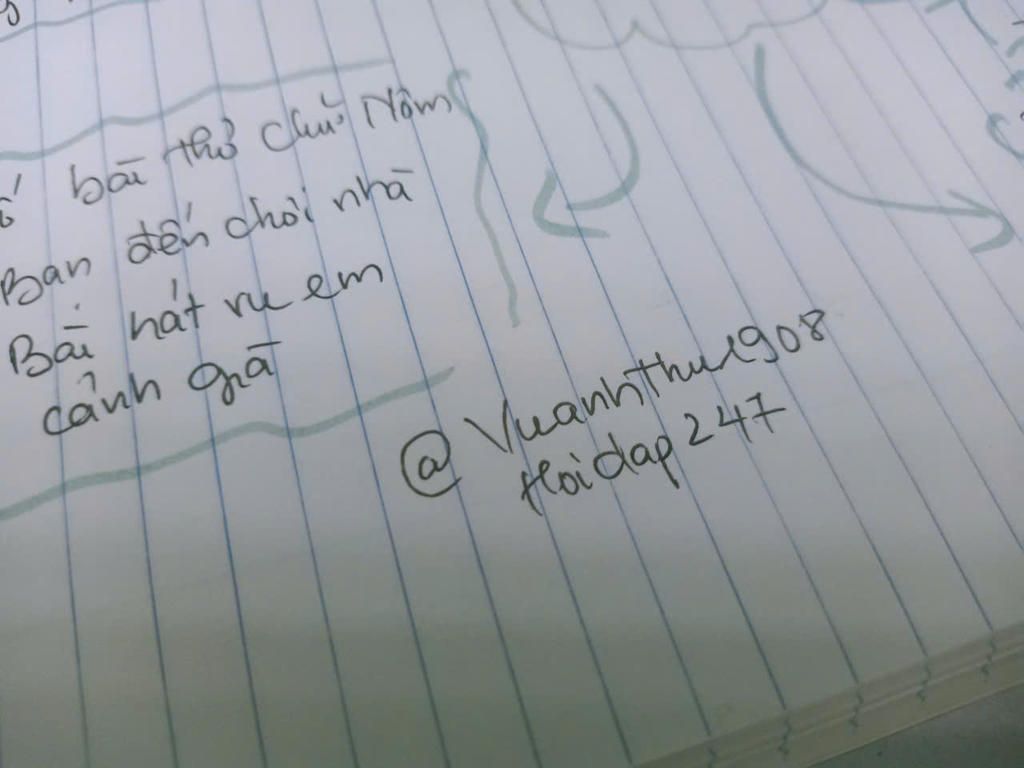 bài thơ chữ Nôm
Bạn đến chơi nhà
Bài hát ru em
cảnh già
@ Vuanhthu1908
Hoidap247